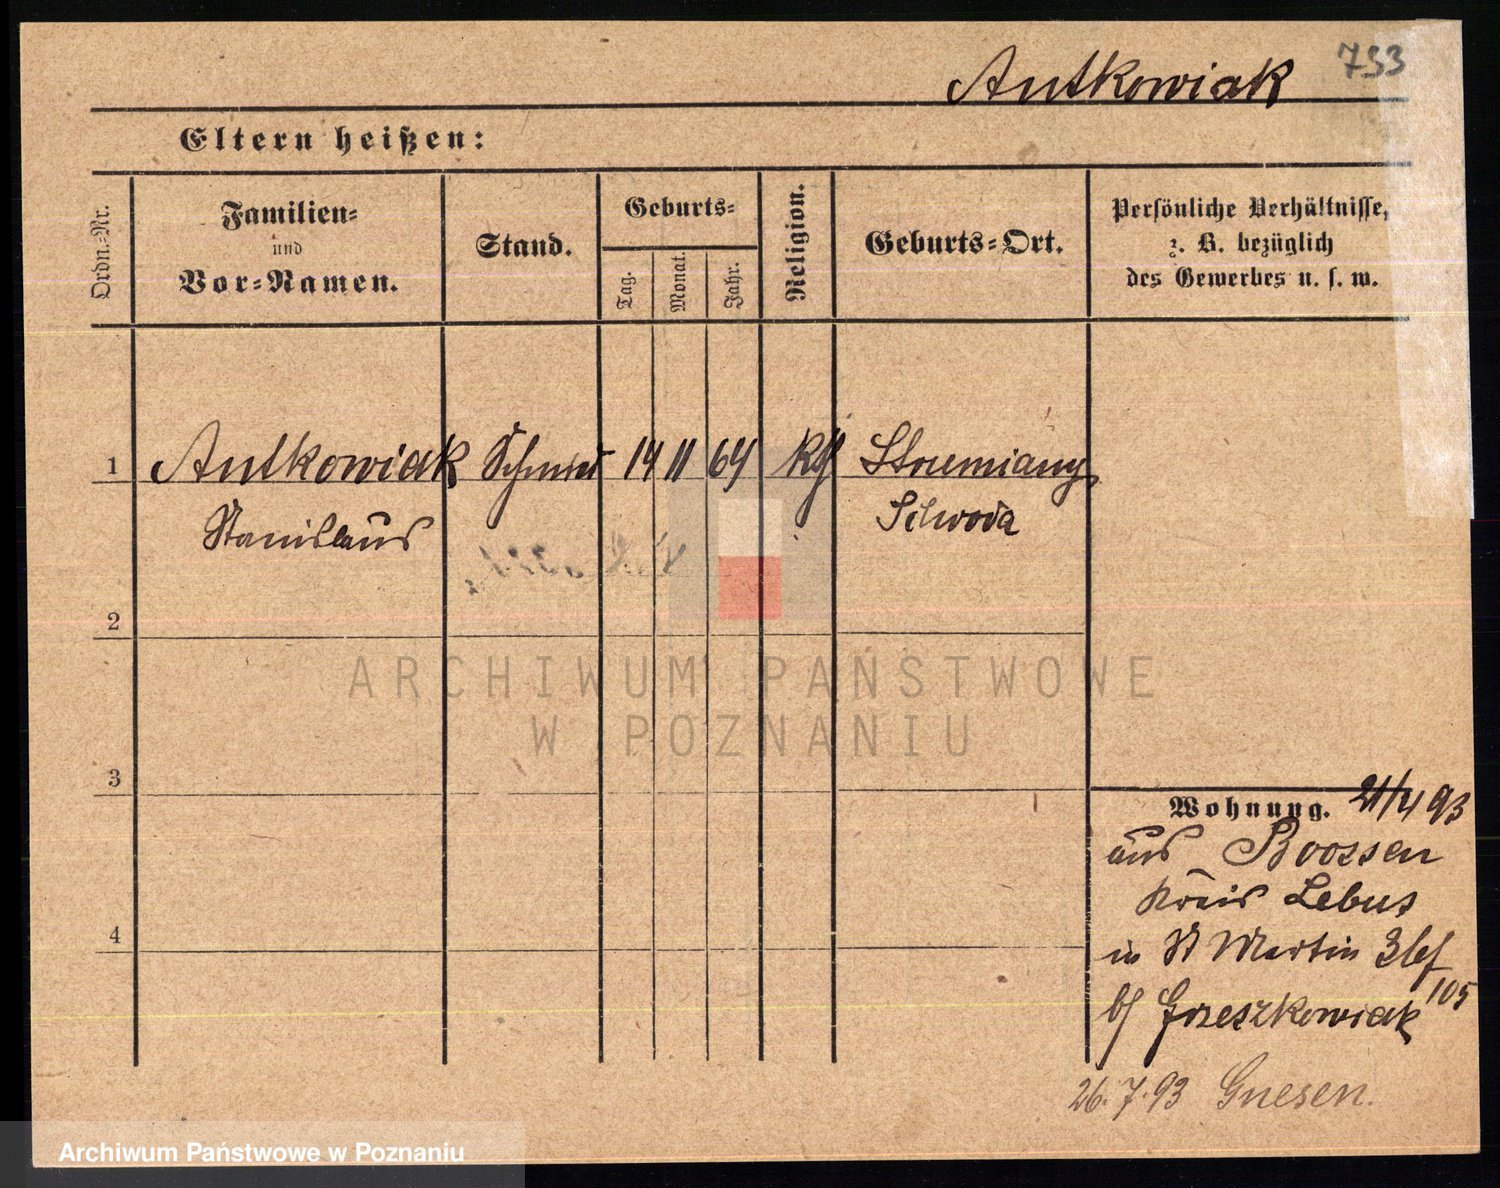 Antkowiak 733
Eltern heißen:
Ordn.-Nr.
Familien-
und
Vor-Namen.
Stand.
Geburts-
Tag.
Monat.
Jahr.
Religion.
Geburts-Ort.
Persönliche Verhältnisse,
z. B. bezüglich
des Gewerbes u. s. w.
1 Antkowiak Schmied 14 11 64 Kth Strumiany
Stanislaus Schroda
2
3
4
Wohnung. 21/4 93
aus Boossen
Kreis Lebus
in St Martin
b/ Grzeszkowiak 105
26.7.93 Gnesen.
ARCHIWUM PAŃSTWOWE
W POZNANIU
Archiwum Państwowe w Poznaniu